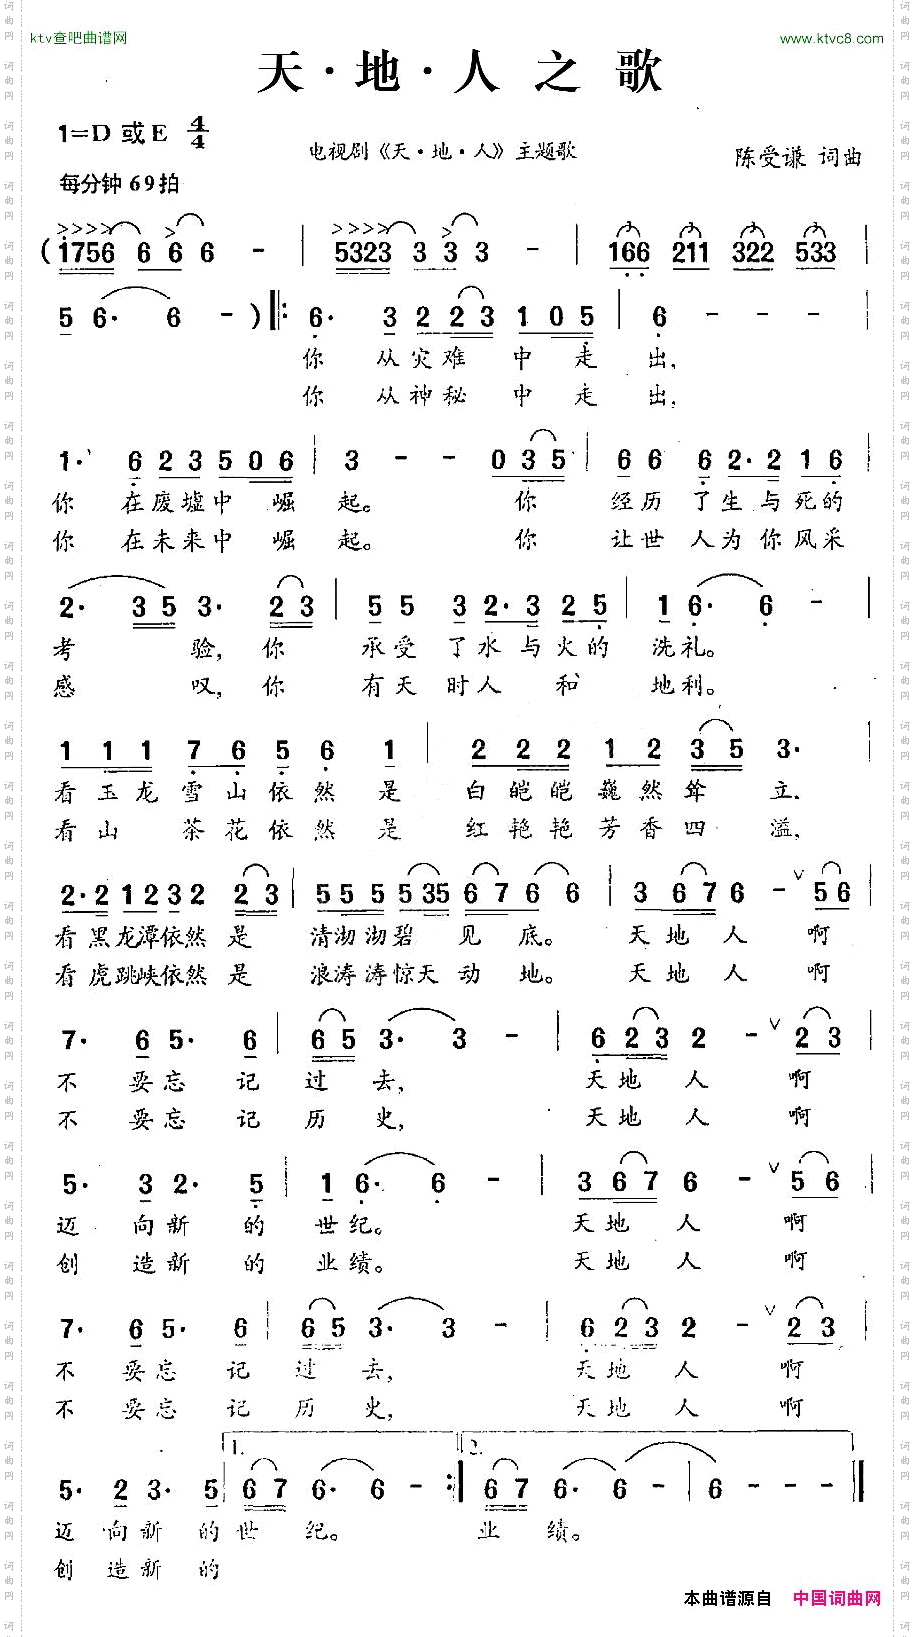 ktv查吧曲谱网 www.ktvc8.com
天·地·人之歌
1=D 或E 4/4
电视剧《天·地·人》主题歌
陈受谦 词曲
每分钟69拍
(1756 6 6 6 - | 5323 3 3 3 - | 166 211 322 533 |
5 6· 6 - ) ‖: 6· 3 2 2 3 1 0 5 | 6 - - - |
你 从灾难 中 走 出,
你 从神秘 中 走 出,
1· 6 2 3 5 0 6 | 3 - - 0 3 5 | 6 6 6 2· 2 1 6 |
你 在废墟中 崛 起。 你 经历 了生与死的
你 在未来中 崛 起。 你 让世 人为你风采
2· 3 5 3· 2 3 | 5 5 3 2· 3 2 5 | 1 6· 6 - |
考 验,你 承受了水与火的 洗礼。
感 叹,你 有天时人 和 地利。
1 1 1 7 6 5 6 1 | 2 2 2 1 2 3 5 3· |
看玉龙雪山依然是 白皑皑巍然耸 立.
看山 茶花依然是 红艳艳芳香四 溢,
2· 2 1 2 3 2 2 3 | 5 5 5 5 35 6 7 6 6 | 3 6 7 6 - 5 6 |
看黑龙潭依然是 清沏沏碧 见 底。 天地人 啊
看虎跳峡依然是 浪涛涛惊天动 地。 天地人 啊
7· 6 5· 6 | 6 5 3· 3 - | 6 2 3 2 - 2 3 |
不 要忘 记 过 去, 天地 人 啊
不 要忘 记 历 史, 天地 人 啊
5· 3 2· 5 | 1 6· 6 - | 3 6 7 6 - 5 6 |
迈 向新 的 世纪。 天地 人 啊
创 造新 的 业绩。 天地 人 啊
7· 6 5· 6 | 6 5 3· 3 - | 6 2 3 2 - 2 3 |
不 要忘 记 过 去, 天地 人 啊
不 要忘 记 历 史, 天地 人 啊
1. 2.
5· 2 3· 5 | 6 7 6· 6 - :‖ 6 7 6· 6 - | 6 - - - ‖
迈 向新 的世 纪。 业 绩。
创 造新 的
本曲谱源自 中国词曲网